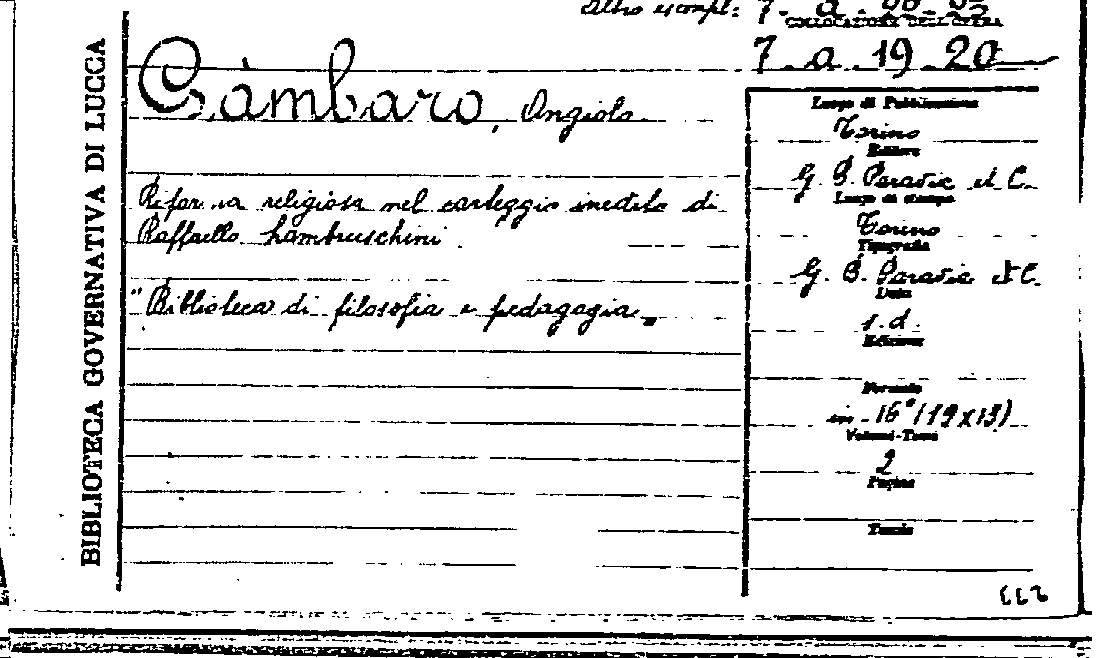 Altro esempl: 7. a.
COLLOCAZIONE DELL'OPERA
7. a. 19. 20
BIBLIOTECA GOVERNATIVA DI LUCCA
Gámbaro, Angiolo
Rifor a religiosa nel carteggio inedito di
Raffaello Lambruschini
"Biblioteca di filosofia e pedagogia"
Luogo di Pubblicazione
Torino
Editore
G. B. Paravia et C.
Luogo di stampa
Torino
Tipografia
G. B. Paravia et C.
Data
s. d.
Edizione
Formato
in-16° (19x13)
Volumi-Tomi
2
Pagine
Tavole